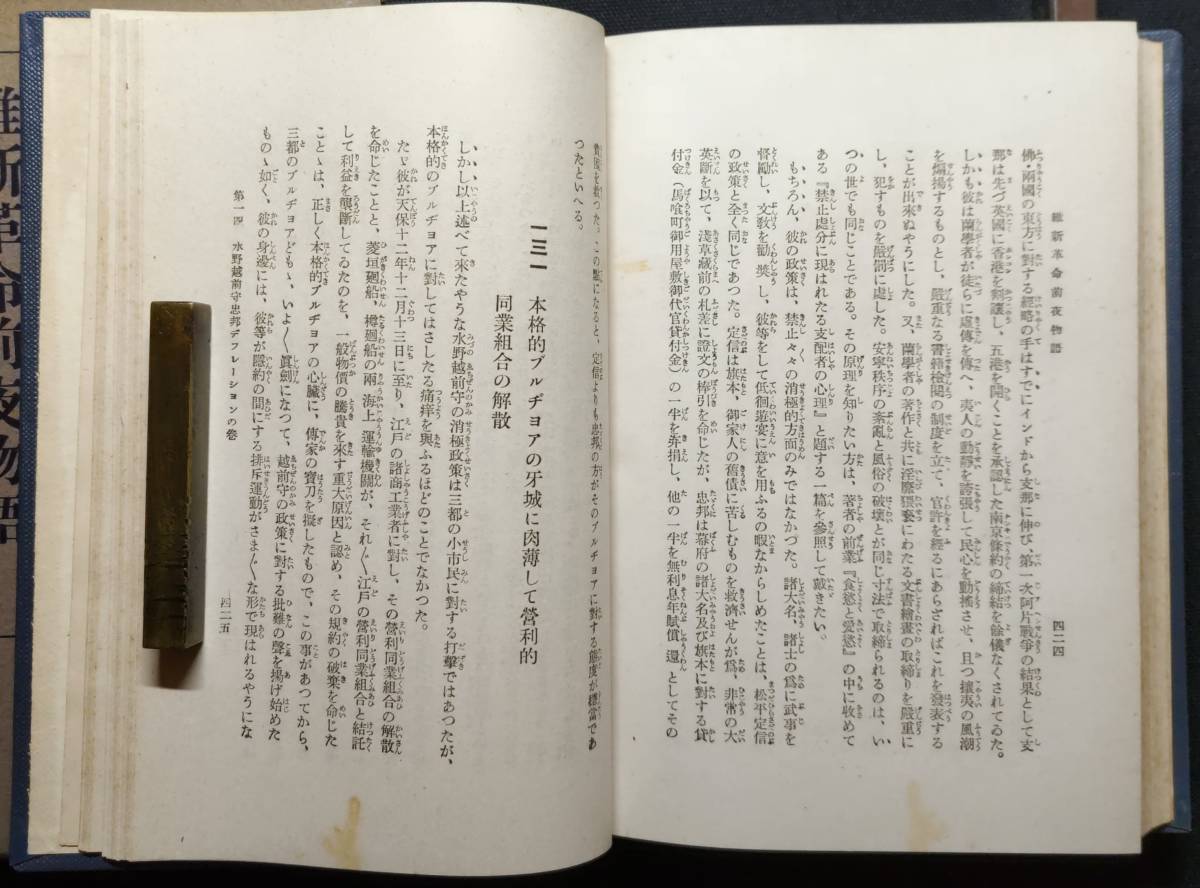 維新革命前夜物語
四二四
佛・兩國の東方に對する經略の手はすでにインドから支那に伸び、第一次阿片戰爭の結果として支
那は先づ英國に香港を割讓し、五港を開くことを承認した南京條約の締結を餘儀なくされてゐた。
しかも彼は蘭學者が徒らに虚傳を傳へ、夷人の動靜を誇張して民心を動搖させ、且つ攘夷の風潮
を煽揚するものとし、嚴重なる書籍檢閲の制度を立て、官許を經るにあらざればこれを發表する
ことが出來ぬやうにした。又、蘭學者の著作と共に淫靡猥褻にわたる文書繪畫の取締りを嚴重に
し、犯すものを嚴罰に處した。安寧秩序の紊亂と風俗の破壞とが同じ寸法で取締られるのは、い
つの世でも同じことである。その原理を知りたい方は、著者の前業『食慾と愛慾』の中に收めて
ある『禁止處分に現はれたる支配者の心理』と題する一篇を參照して戴きたい。
もちろん、彼の政策は、禁止々々の消極的方面のみではなかつた。諸大名、諸士の爲に武事を
督勵し、文教を勸奬し、彼等をして低徊遊宴に意を用ふるの暇なからしめたことは、松平定信
の政策と全く同じであつた。定信は旗本、御家人の舊債に苦しむものを救濟せんが爲、非常の大
英斷を以て、淺草藏前の札差に證文の棒引を命じたが、忠邦は幕府の諸大名及び旗本に對する貸
付金(馬喰町御用屋敷御代官貸付金)の一半を弃捐し、他の一半を無利息年賦償還としてその
を救つた。この點になると、定信よりも忠邦の方がそのブルヂョアに對する態度が穩當であ
つたといへる。
一三一 本格的ブルヂョアの牙城に肉薄して營利的
同業組合の解散
しかし以上述べて來たやうな水野越前守の消極政策は三都の小市民に對する打擊ではあつたが、
本格的のブルヂョアに對してはさしたる痛痒を與ふるほどのことでなかつた。
たゞ彼が天保十二年十二月十三日に至り、江戸の諸商工業者に對し、その營利同業組合の解散
を命じたことと、菱垣廻船、樽廻船の兩海上運輸機關が、それ〴〵江戸の營利同業組合と結託
して利益を壟斷してゐたのを、一般物價の騰貴を來す重大原因と認め、その規約の破棄を命じた
ことゝは、正しく本格的ブルヂョアの心臟に、傳家の寶刀を擬したもので、この事があつてから、
三都のブルヂョアどもゝ、いよ〳〵眞劍になつて、越前守の政策に對する批難の聲を揚げ始めた
ものゝ如く、彼の身邊には、彼等が隱約の間にする排斥運動がさま〴〵な形で現はれるやうにな
第一四 水野越前守忠邦デフレーションの卷
四二五
維新革命前夜物語